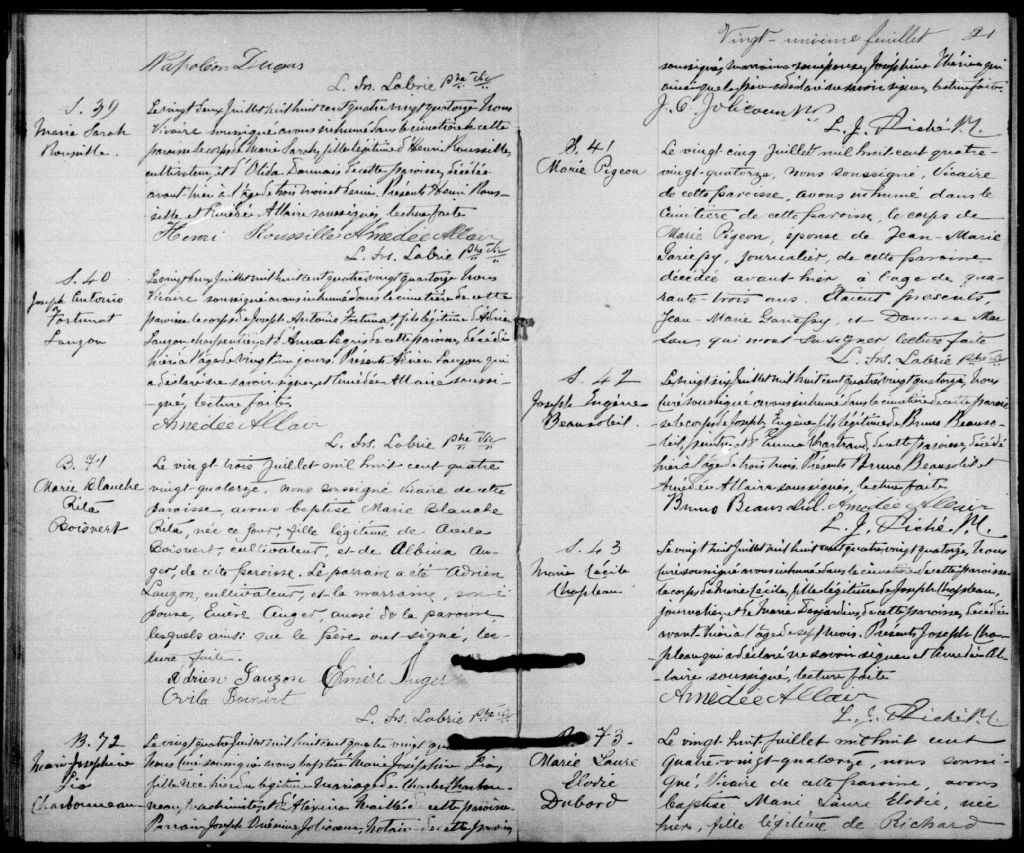 Napoléon Dugas
L. Frs. Labrie Ptre Vic
S. 39
Marie Sarah
Roussille.
Le vingt deux Juillet mil huit cent quatre vingt quatorze, Nous
Vicaire soussigné avons inhumé dans le cimetière de cette
paroisse le corps de Marie Sarah, fille légitime d'Henri Roussille,
cultivateur, et d'Olida Daunais de cette paroisse, décédée
avant-hier à l'âge de trois mois et demi. Présents Henri Rous-
sille et Amédée Allaire soussignés, lecture faite
Henri Roussille Amédée Allair
L. Frs. Labrie Ptre Vic
S. 40
Joseph Antonio
Fortunat
Lauzon
Le vingt deux Juillet mil huit cent quatre vingt quatorze Nous
Vicaire soussigné avons inhumé dans le cimetière de cette
paroisse le corps de Joseph Antonio Fortunat, fils légitime d'Adrien
Lauzon charpentier et d'Anna Legris de cette paroisse, décédé
hier à l'âge de vingt un jours. Présents Adrien Lauzon qui
a déclaré ne savoir signer et Amédée Allaire soussi-
gné, lecture faite,
Amédée Allair
L. Frs. Labrie Ptre Vic
B. 71
Marie Blanche
Rita
Boisvert
Le vingt trois Juillet mil huit cent quatre
vingt-quatorze, nous soussigné Vicaire de cette
paroisse, avons baptisé Marie Blanche
Rita, née ce jour, fille légitime de Ovila
Boisvert, cultivateur, et de Albina Au-
ger, de cette paroisse. Le parrain a été Adrien
Lauzon, cultivateur, et la marraine, son é-
pouse, Emère Auger, aussi de la paroisse
lesquels ainsi que le père ont signé, lec-
ture faite.
Adrien Lauzon Emère Auger
Ovila Boisvert
L. Frs. Labrie Ptre Vic
B. 72
Marie Josephine
Lia
Charbonneau
Le vingt quatre Juillet mil huit cent quatre vingt
Nous Curé soussigné avons baptisé Marie Josephine Lia,
fille née hier du légitime mariage de Charles Charbon-
neau, machiniste, et d'Alexina Maillé de cette paroisse.
Parrain Joseph Onésime Jolicoeur, Notaire de cette paroisse
Vingt-unième feuillet 21
soussigné, Marraine son épouse, Josephine Thérien qui
ainsi que le père a déclaré ne savoir signer, lecture faite.
J. O. Jolicoeur N.P.
L. J. Piché M.
S. 41
Marie Pigeon
Le vingt cinq Juillet mil huit cent quatre-
vingt-quatorze, nous soussigné, Vicaire
de cette paroisse, avons inhumé dans le
cimetière de cette paroisse, le corps de
Marie Pigeon, épouse de Jean-Marie
Gariepy, journalier, de cette paroisse
décédée avant hier à l'age de qua-
rante trois ans. Étaient présents,
Jean-Marie Gariepy, et Damase Mas-
son, qui n'ont su signer lecture faite
L. Frs. Labrie Ptre Vic
S. 42
Joseph Eugène
Beausoleil.
Le vingt six Juillet mil huit cent quatre vingt quatorze, Nous
Curé soussigné avons inhumé dans le cimetière de cette parois-
se le corps de Joseph Eugène, fils légitime de Bruno Beauso-
leil, peintre, et d'Emma Chartrand, de cette paroisse, décédé
hier à l'âge de trois mois. Présents Bruno Beausoleil et
Amédée Allaire soussignés, lecture faite
Bruno Beausoleil Amédée Allair
L. J. Piché M.
S. 43
Marie Cécile
Chapleau
Le vingt huit Juillet mil huit cent quatre vingt quatorze, Nous
Curé soussigné avons inhumé dans le cimetière de cette paroisse
le corps de Marie Cécile, fille légitime de Joseph Chapleau,
journalier, et de Marie Desjardins, de cette paroisse, décédée
avant-hier à l'âge de sept mois. Présents Joseph Cha-
pleau qui a déclaré ne savoir signer et Amédée Al-
laire soussigné, lecture faite
Amédée Allair
L. J. Piché M.
73
Marie Laure
Elodie
Dubord
Le vingt huit Juillet mil huit cent
quatre-vingt-quatorze, nous soussi-
gné, Vicaire de cette paroisse, avons
baptisé Marie Laure Elodie, née
hier, fille légitime de Richard